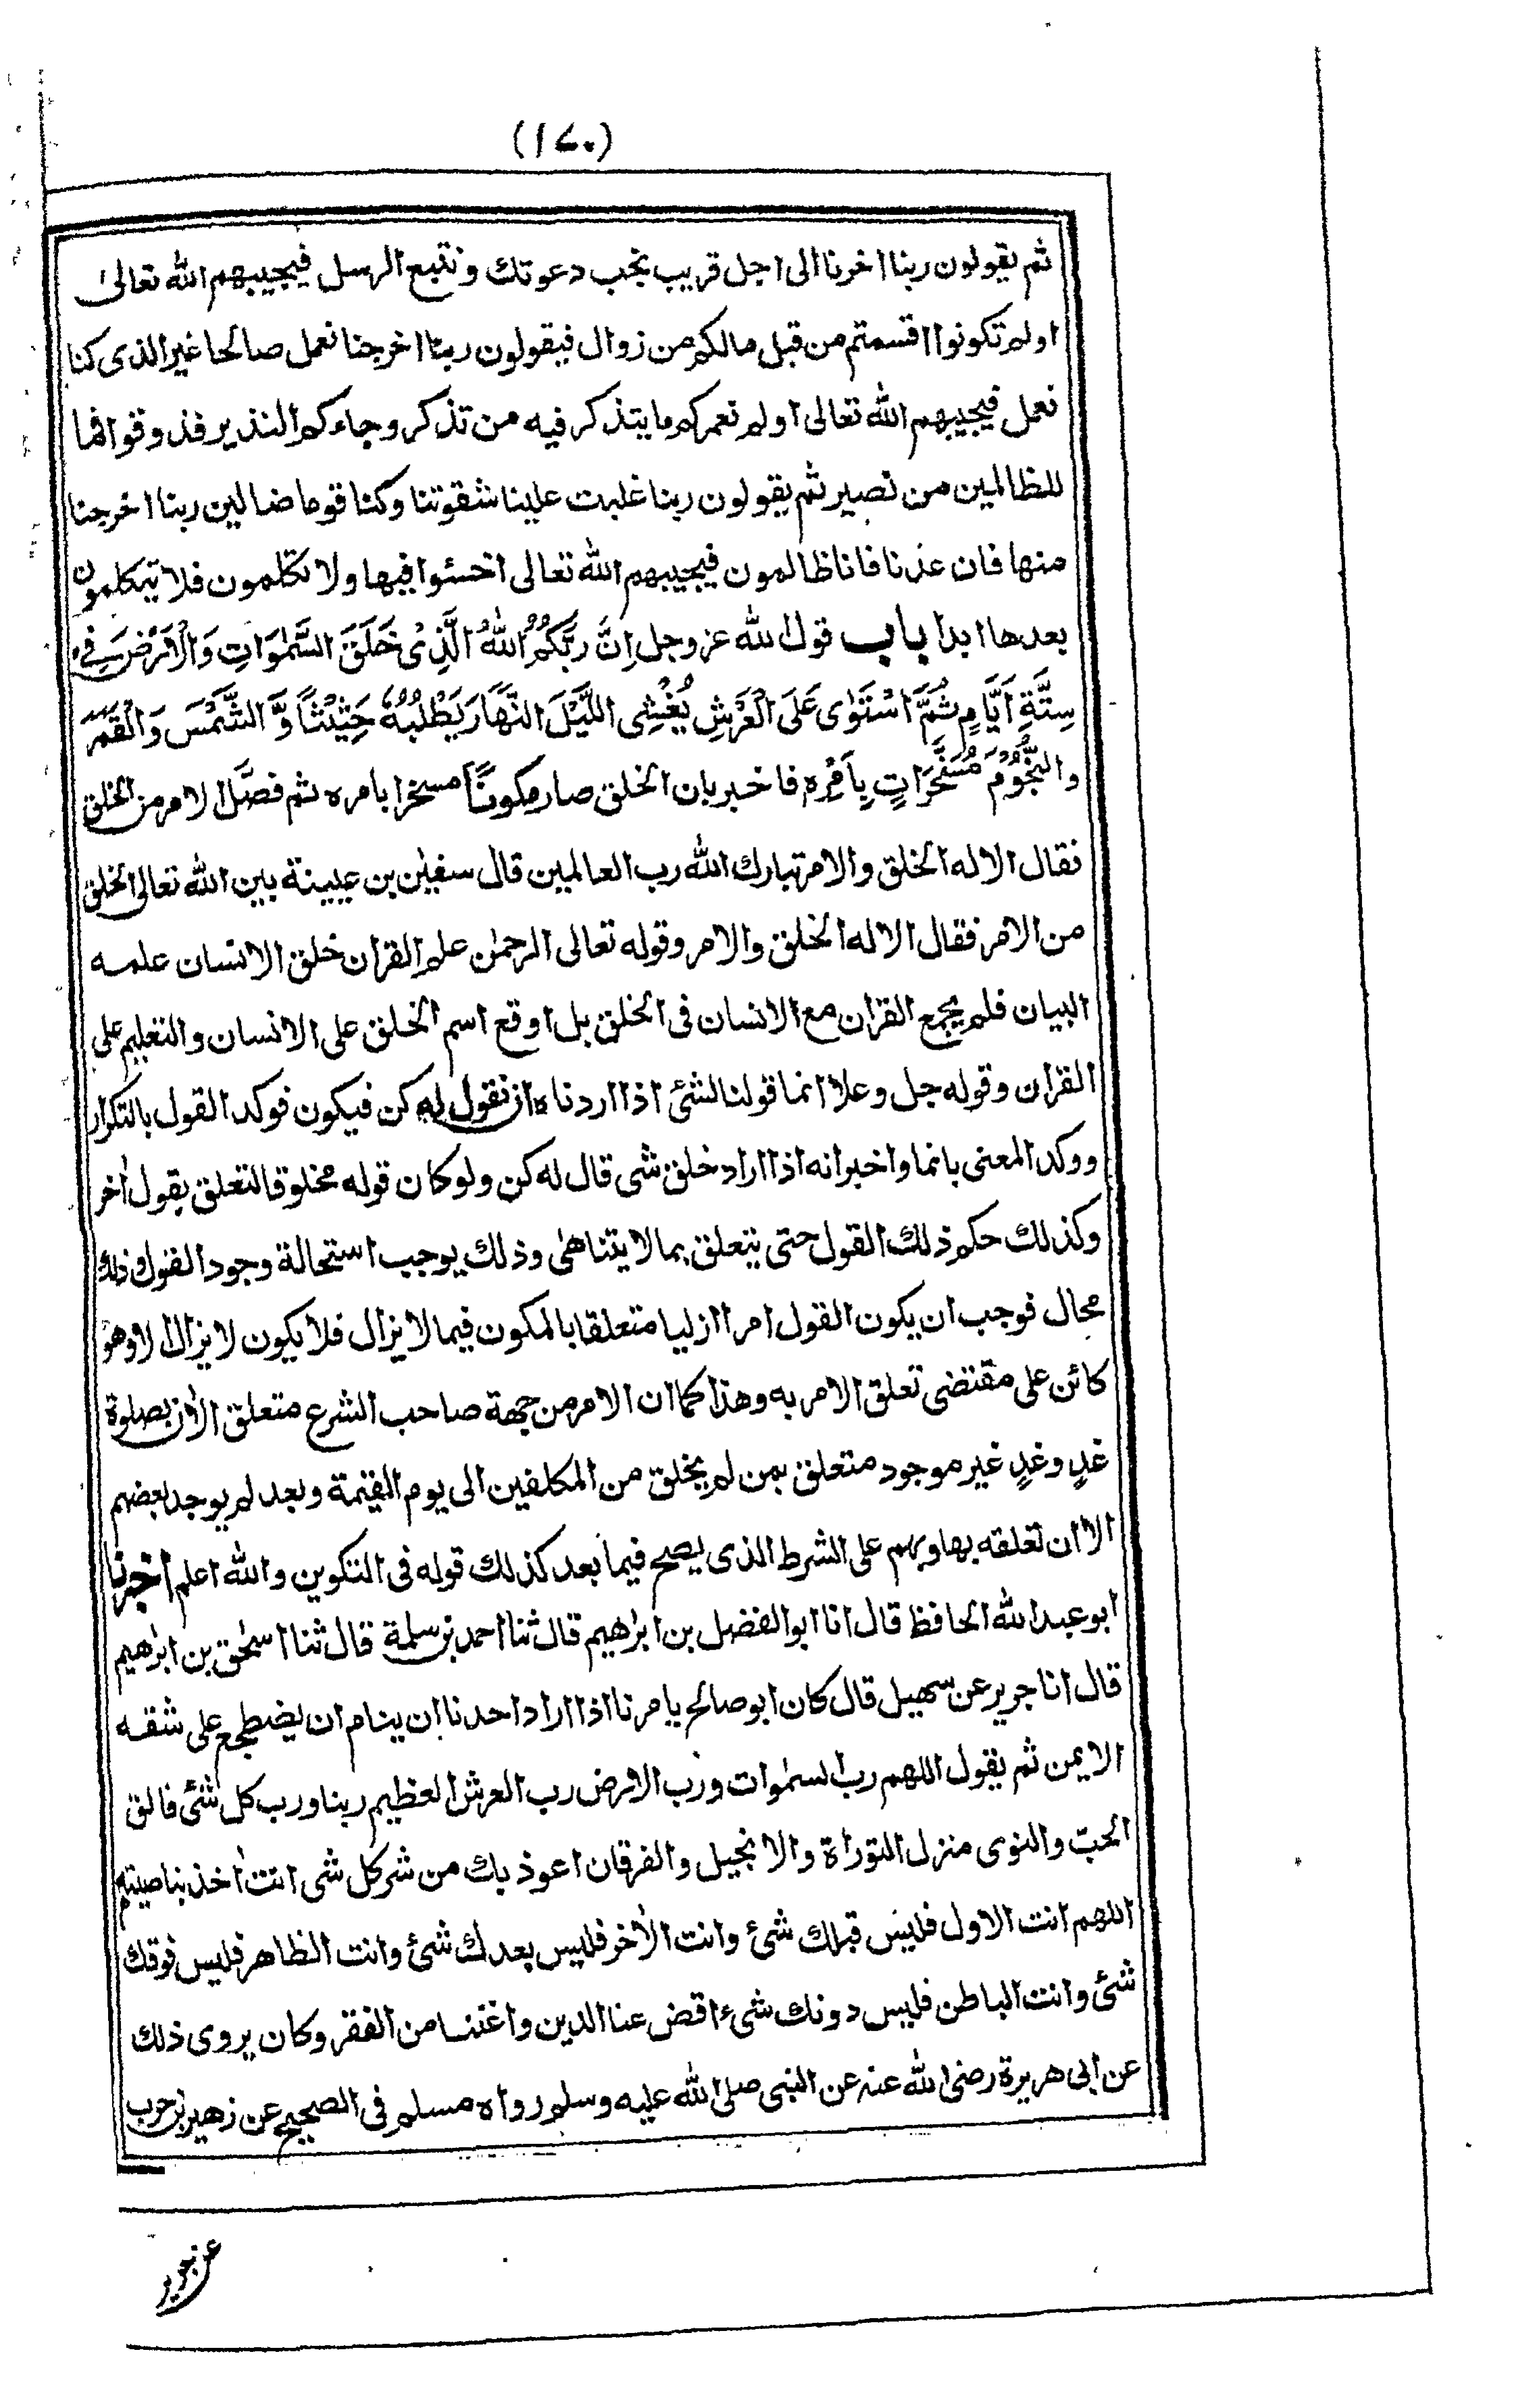 (١٧٠)
ثم يقولون ربنا اخرنا الى اجل قريب نجب دعوتك ونتبع الرسل فيجيبهم الله تعالى
اولم تكونوا اقسمتم من قبل مالكم من زوال فيقولون ربنا اخرجنا نعمل صالحا غير الذى كنا
نعمل فيجيبهم الله تعالى اولم نعمركم ما يتذكر فيه من تذكر وجاءكم النذير فذوقوا فما
للظالمين من نصير ثم يقولون ربنا غلبت علينا شقوتنا وكنا قوما ضالين ربنا اخرجنا
منها فان عدنا فانا ظالمون فيجيبهم الله تعالى اخسئوا فيها ولا تكلمون فلا يتكلمون
بعدها ابدا باب قول الله عز وجل اِنَّ رَبَّكُمُ اللّٰهُ الَّذِىْ خَلَقَ السَّمٰوَاتِ وَالْاَرْضَ فِىْ
سِتَّةِ اَيَّامٍ ثُمَّ اسْتَوٰى عَلَى الْعَرْشِ يُغْشِى اللَّيْلَ النَّهَارَ يَطْلُبُهٗ حَثِيْثًا وَّ الشَّمْسَ وَالْقَمَرَ
والنُّجُوْمَ مُسَخَّرَاتٍ بِاَمْرِهٖ فاخبر بان الخلق صار مكونًا مسخرا بامره ثم فصَّل الامر من الخلق
فقال الا له الخلق والامر تبارك الله رب العالمين قال سفيٰن بن عيينة بين الله تعالى الخلق
من الامر فقال الا له الخلق والامر وقوله تعالى الرحمٰن علم القراٰن خلق الانسان علمه
البيان فلم يجمع القراٰن مع الانسان فى الخلق بل اوقع اسم الخلق على الانسان والتعليم على
القراٰن وقوله جل وعلا انما قولنا لشئ اذا اردناه ان نقول له كن فيكون فوكد القول بالتكرار
ووكد المعنى بانما واخبر انه اذا اراد خلق شى قال له كن ولو كان قوله مخلوقا لتعلق بقول اٰخر
وكذلك حكم ذلك القول حتى يتعلق بما لا يتناهٰى وذلك يوجب استحالة وجود القول وذلك
محال فوجب ان يكون القول امرا ازليا متعلقا بالمكون فيما لا يزال فلا يكون لا يزال الا وهو
كائن على مقتضى تعلق الامر به وهذا كما ان الامر من جهة صاحب الشرع متعلق الاٰن بصلوة
غدٍ وغدٍ غير موجود متعلق بمن لم يخلق من المكلفين الى يوم القيٰمة وبعد لم يوجد بعضهم
الا ان تعلقه بها وبهم على الشرط الذى يصح فيما بعد كذلك قوله فى التكوين والله اعلم اخبرنا
ابو عبد الله الحافظ قال انا ابو الفضل بن ابرٰهيم قال ثنا احمد بن سلمة قال ثنا اسحٰق بن ابرٰهيم
قال انا جرير عن سهيل قال كان ابو صالح يامرنا اذا اراد احدنا ان ينام ان يضطجع على شقه
الايمن ثم يقول اللهم رب السمٰوات ورب الارض رب العرش العظيم ربنا ورب كل شئ فالق
الحبّ والنوى منزل التوراة والانجيل والفرقان اعوذ بك من شر كل شى انت اٰخذ بناصيته
اللهم انت الاول فليس قبلك شئ وانت الاٰخر فليس بعدك شئ وانت الظاهر فليس فوقك
شئ وانت الباطن فليس دونك شئ اقض عنا الدين واغننا من الفقر وكان يروى ذلك
عن ابى هريرة رضى الله عنه عن النبى صلى الله عليه وسلم رواه مسلم فى الصحيح عن زهير بن حرب
عن جرير